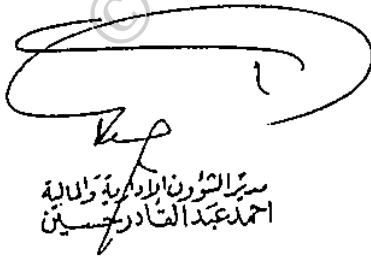 مدير الشؤون الإدارية والمالية
احمد عبد القادر حسين